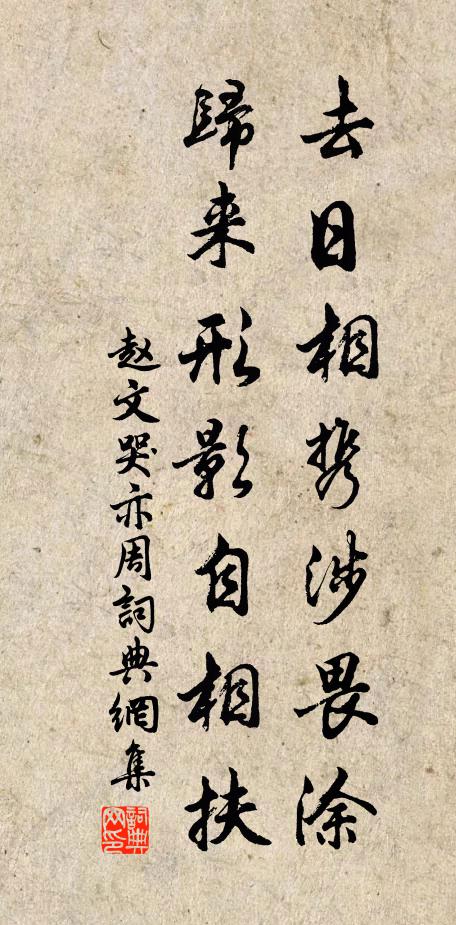 去日相携涉畏涂
歸来形影自相扶
赵文哭亦周詞典網集
詞典網印